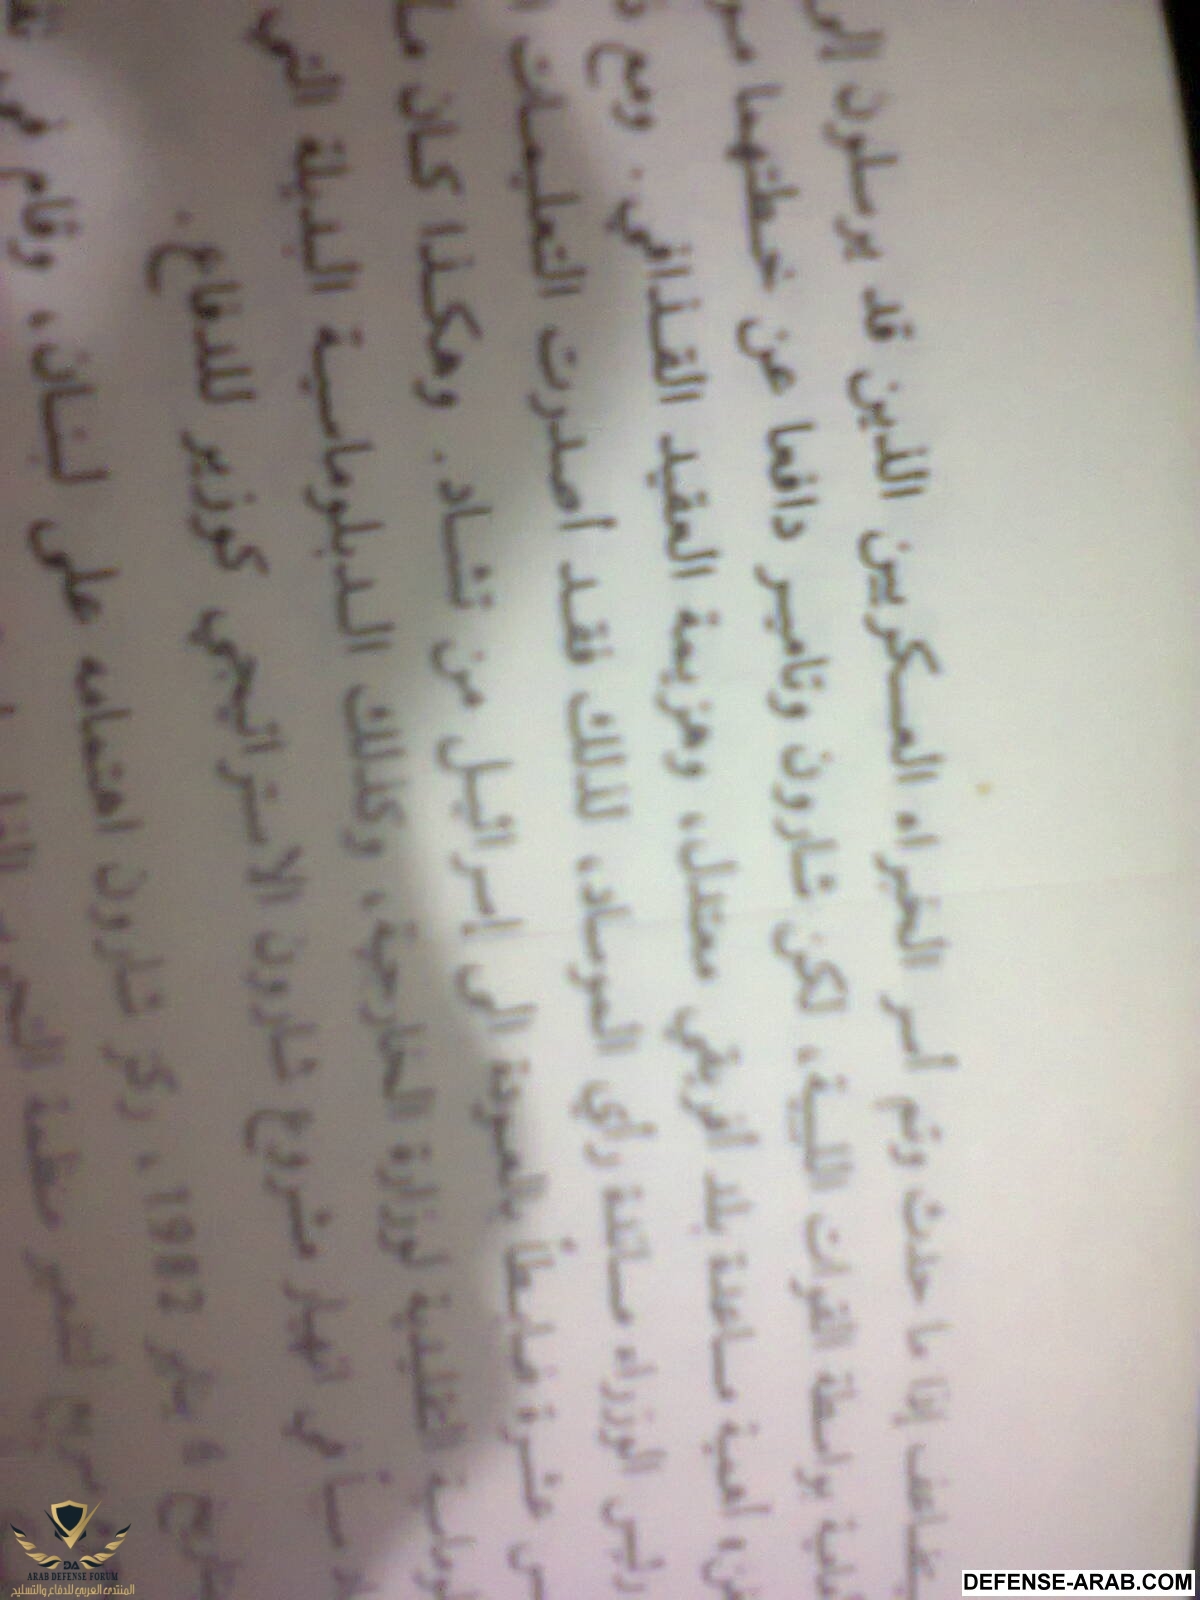 إذا ما حدث وتم أسر الخبراء العسكريين الذين قد يرسلون إلى
بواسطة القوات الليبية، لكن شارون وتامير دافعا عن خطتهما
أهمية مساعدة بلد أفريقي معتدل، وهزيمة العقيد القذافي. ومع
رئيس الوزراء مساندة رأي الموساد، لذلك فقد أصدرت التعليمات
عشرة ضابطاً بالعودة إلى إسرائيل من تشاد. وهكذا كان
التقليدية لوزارة الخارجية، وكذلك الدبلوماسية البديلة التي
في انهيار مشروع شارون الاستراتيجي كوزير للدفاع.
1982، ركز شارون اهتمامه على لبنان، وقام في
منظمة التحرير
DA
ARAB DEFENSE FORUM
المنتدى العربي للدفاع والتسليح
DEFENSE-ARAB.COM